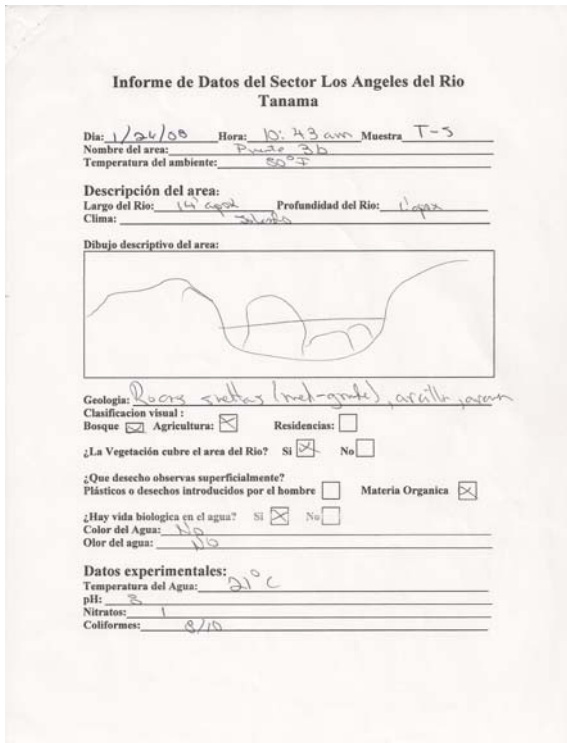 Informe de Datos del Sector Los Angeles del Rio
Tanama
Dia: 1/26/08 Hora: 10:43 am Muestra T-5
Nombre del area: 3b
Temperatura del ambiente: 80°F
Descripción del area:
Largo del Rio: 14' apox Profundidad del Rio: 1' apox
Clima:
Dibujo descriptivo del area:
Geologia: Rocas sueltas (med-grande), arcilla, aren
Clasificacion visual :
Bosque Agricultura: Residencias:
¿La Vegetación cubre el area del Rio? Si No
¿Que desecho observas superficialmente?
Plásticos o desechos introducidos por el hombre Materia Organica
¿Hay vida biologica en el agua? Si No
Color del Agua: No
Olor del agua: No
Datos experimentales:
Temperatura del Agua: 21°C
pH: 8
Nitratos: 1
Coliformes: 8/10